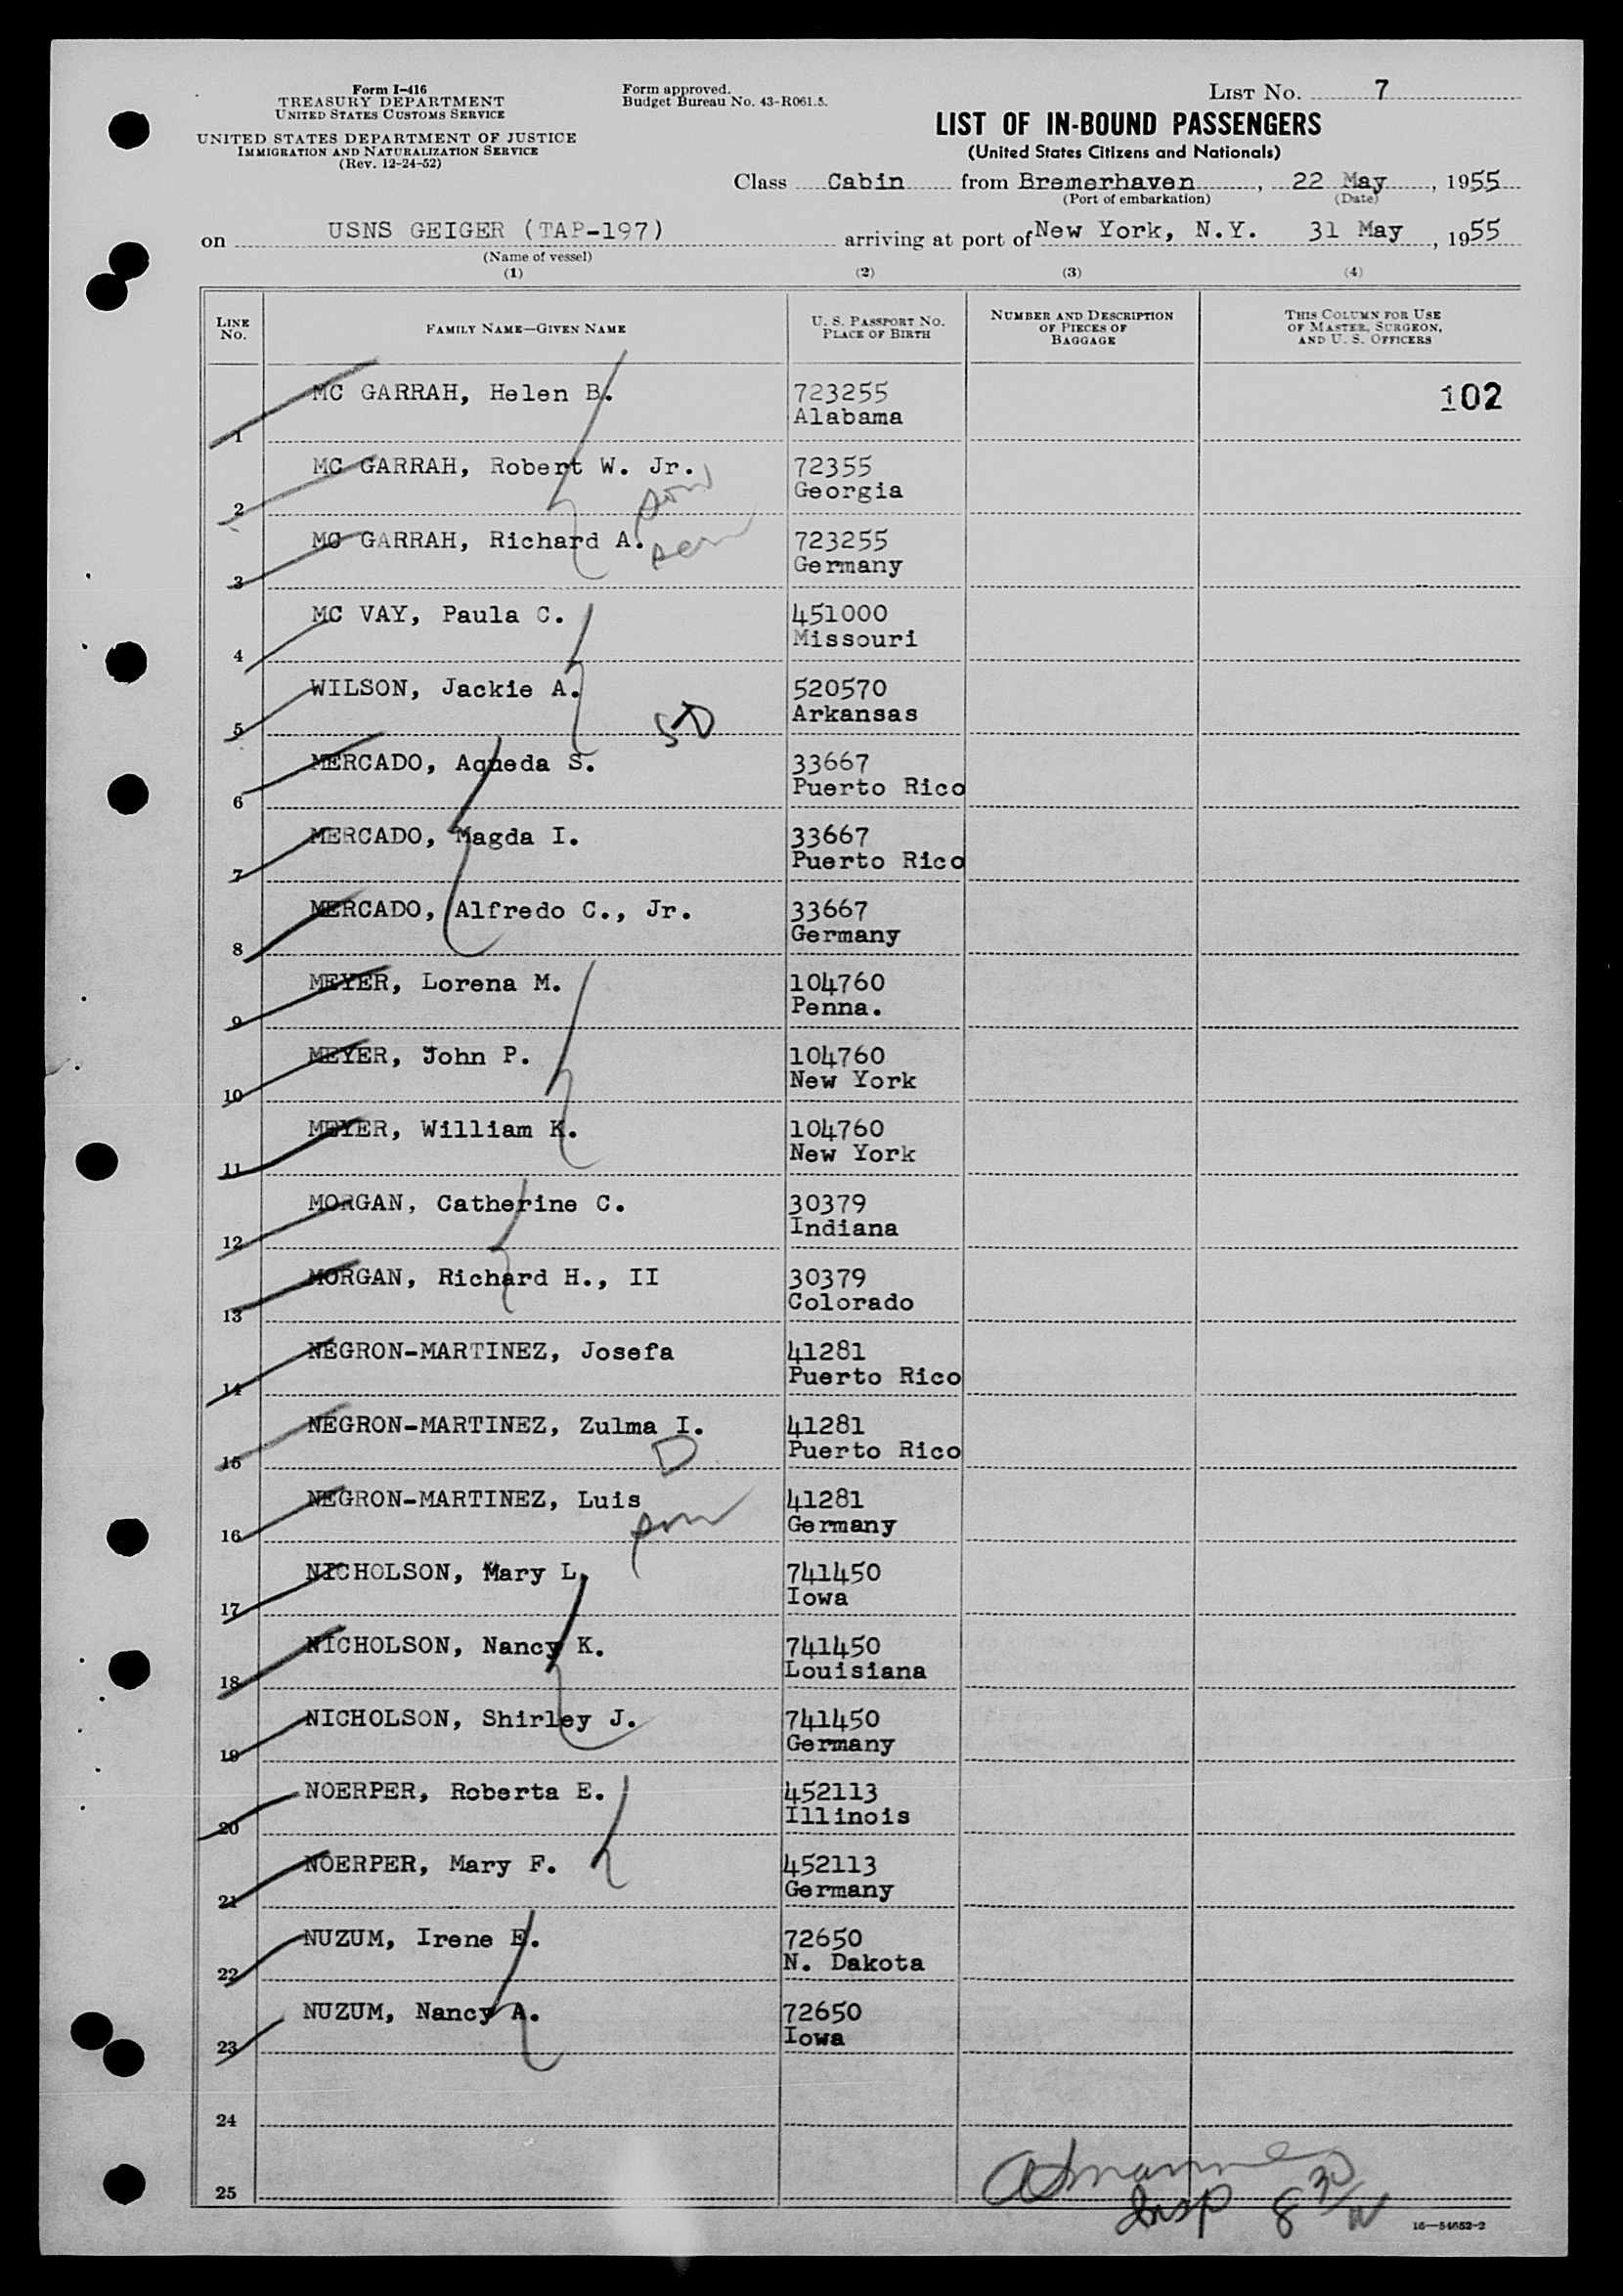 Form I-416
TREASURY DEPARTMENT
UNITED STATES CUSTOMS SERVICE
UNITED STATES DEPARTMENT OF JUSTICE
IMMIGRATION AND NATURALIZATION SERVICE
(Rev. 12-24-52)
Form approved.
Budget Bureau No. 43-R061.5.
LIST NO. 7
LIST OF IN-BOUND PASSENGERS
(United States Citizens and Nationals)
Class Cabin from Bremerhaven, 22 May, 1955
(Port of embarkation) (Date)
on USNS GEIGER (TAP-197) arriving at port of New York, N.Y. 31 May, 1955
(Name of vessel)
(1) (2) (3) (4)
LINE NO. FAMILY NAME—GIVEN NAME U. S. PASSPORT NO. PLACE OF BIRTH NUMBER AND DESCRIPTION OF PIECES OF BAGGAGE THIS COLUMN FOR USE OF MASTER, SURGEON, AND U. S. OFFICERS
MC GARRAH, Helen B. 723255 102
1 Alabama
MC GARRAH, Robert W. Jr. 72355
2 son Georgia
MC GARRAH, Richard A. 723255
3 son Germany
MC VAY, Paula C. 451000
4 Missouri
WILSON, Jackie A. 520570
5 SD Arkansas
MERCADO, Aqueda S. 33667
6 Puerto Rico
MERCADO, Magda I. 33667
7 Puerto Rico
MERCADO, Alfredo C., Jr. 33667
8 Germany
MEYER, Lorena M. 104760
9 Penna.
MEYER, John P. 104760
10 New York
MEYER, William K. 104760
11 New York
MORGAN, Catherine C. 30379
12 Indiana
MORGAN, Richard H., II 30379
13 Colorado
NEGRON-MARTINEZ, Josefa 41281
14 Puerto Rico
NEGRON-MARTINEZ, Zulma I. 41281
15 D Puerto Rico
NEGRON-MARTINEZ, Luis 41281
16 son Germany
NICHOLSON, Mary L. 741450
17 Iowa
NICHOLSON, Nancy K. 741450
18 Louisiana
NICHOLSON, Shirley J. 741450
19 Germany
NOERPER, Roberta E. 452113
20 Illinois
NOERPER, Mary F. 452113
21 Germany
NUZUM, Irene E. 72650
22 N. Dakota
NUZUM, Nancy A. 72650
23 Iowa
24
25
Insp 8 30
16—54652-2